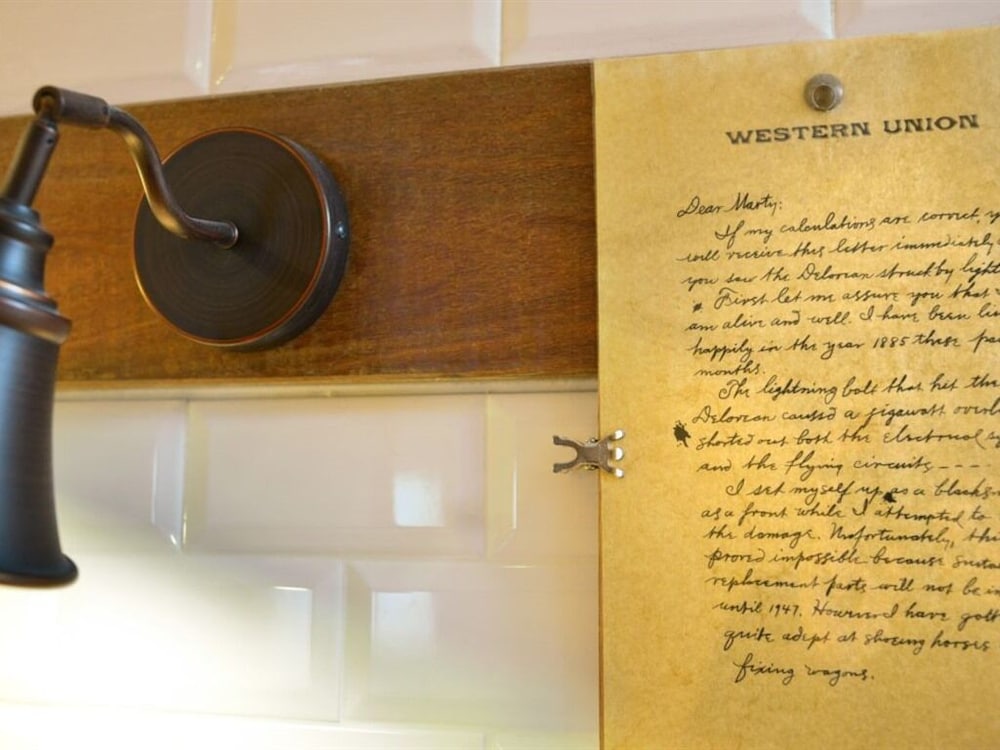 WESTERN UNION
Dear Marty:
If my calculations are correct, y
will receive this letter immediately
you saw the Delorean struck by light
First let me assure you that
am alive and well. I have been
happily in the year 1885 these pa
months.
The lightning bolt that hit the
Delorean caused a jigawatt overl
shorted out both the electrical sy
and the flying circuits----
I set myself up as a blacks
as a front while I attempted to
the damage. Unfortunately, thi
proved impossible because suita
replacement parts will not be in
until 1947. However I have gott
quite adept at shoeing horses
fixing wagons.